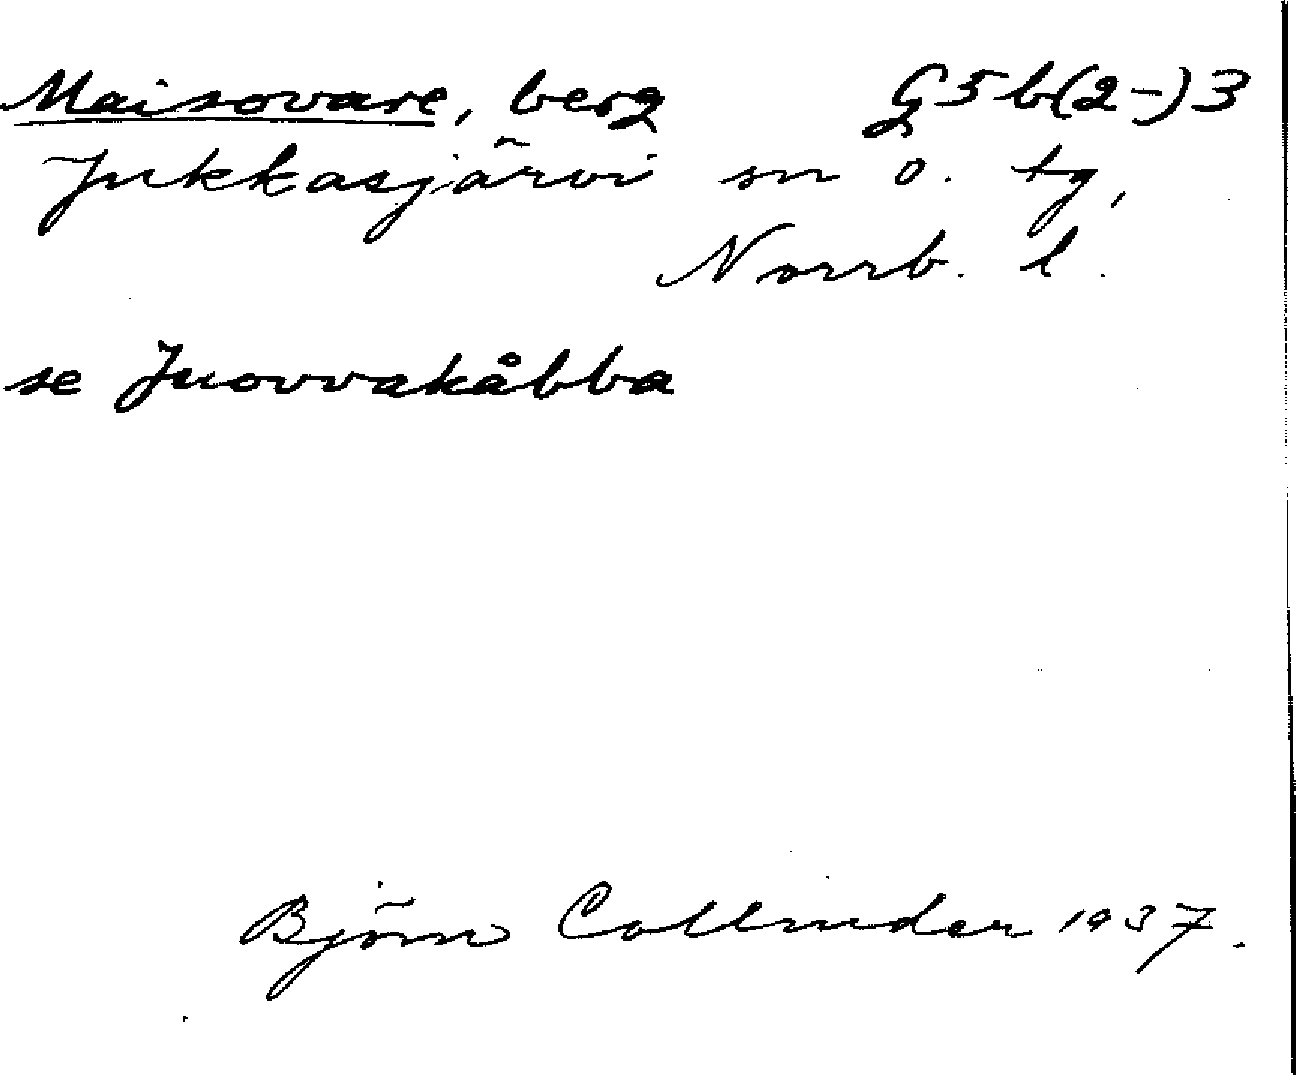 Maisovare, berg G5b(2-)3
Jukkasjärvi sn o. tg,
Norrb. l.
se Juovvakåbba
Björn Collinder 1937.